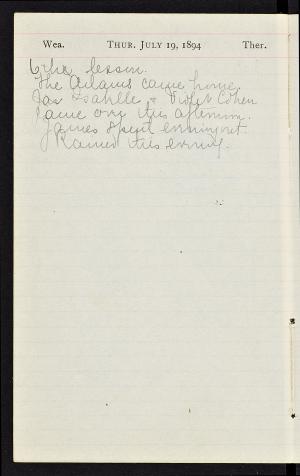 Wea. Thur. July 19, 1894 Ther.
lesson.
The Adams came home.
Isabelle & Violet Cohen
came over this afternoon.
James spent evening out.
Rained this evening.